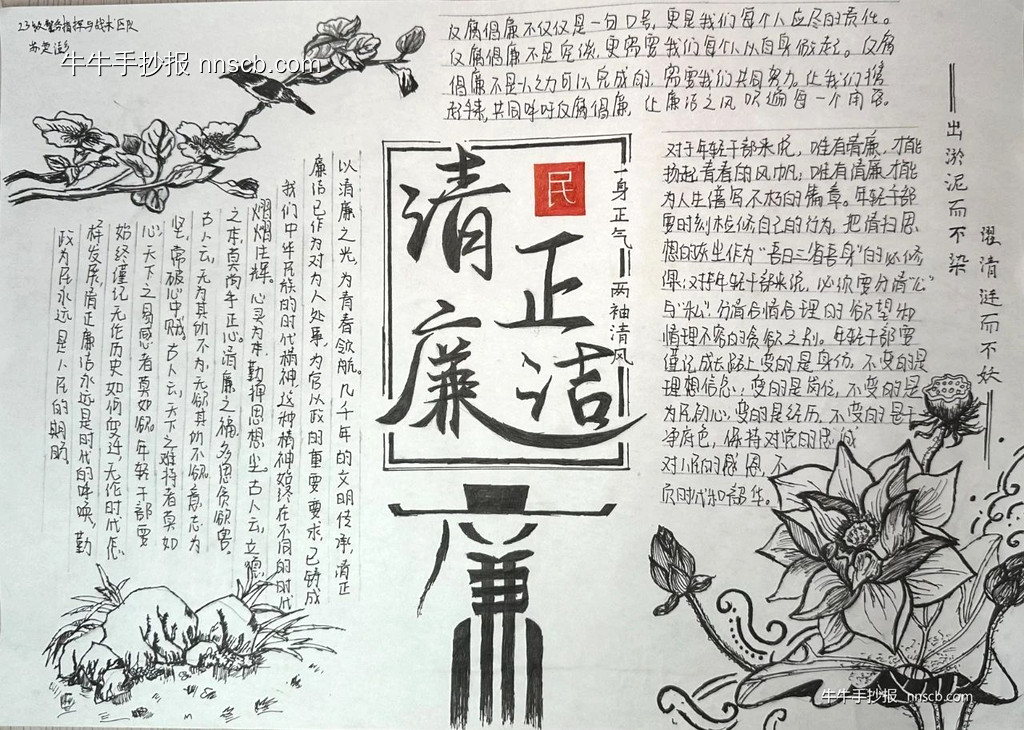 23级警务指挥与战术区队
牛牛手抄报 nnscb.com
反腐倡廉不仅仅是一句口号，更是我们每个人应尽的责任。
反腐倡廉不是空谈，更需要我们每个人从自身做起。反腐
倡廉不是一人之力可以完成的，需要我们共同努力。让我们携
起手来，共同呼吁反腐倡廉，让廉洁之风吹遍每一个角落。
出淤泥而不染
濯清涟而不妖
清廉
正洁
民
一身正气
两袖清风
廉
对于年轻干部来说，唯有清廉，才能
扬起青春的风帆，唯有清廉才能
为人生谱写不朽的篇章。年轻干部
要时刻检修自己的行为，把清扫思
想的灰尘作为“吾日三省吾身”的必修
课；对年轻干部来说，必须要分清“公”
与“私”，分清合情合理的欲望和
情理不容的贪欲之别。年轻干部要
谨记，成长路上变的是身份，不变的是
理想信念；变的是岗位，不变的是
为民初心；变的是经历，不变的是干
净底色，保持对党的忠诚
对人民的感恩，不
负时代和韶华。
以清廉之光，为青春领航。几千年的文明传承，清正
廉洁已作为对为人处事，为官从政的重要要求，已铸成
我们中华民族的时代精神，这种精神始终在不同的时代
熠熠生辉。心灵为本，勤掸思想尘。古人云，立德
之本，莫尚乎正心。清廉之福，多思贪欲害。
古人云，无为其所不为，无欲其所不欲，意志为
坚，常破心中贼。古人云，天下之难持者莫如
心，天下之易感者莫如欲。年轻干部要
始终谨记，无论历史如何变迁，无论时代怎
样发展，清正廉洁永远是时代的呼唤，勤
政为民永远是人民的期盼。
牛牛手抄报 nnscb.com